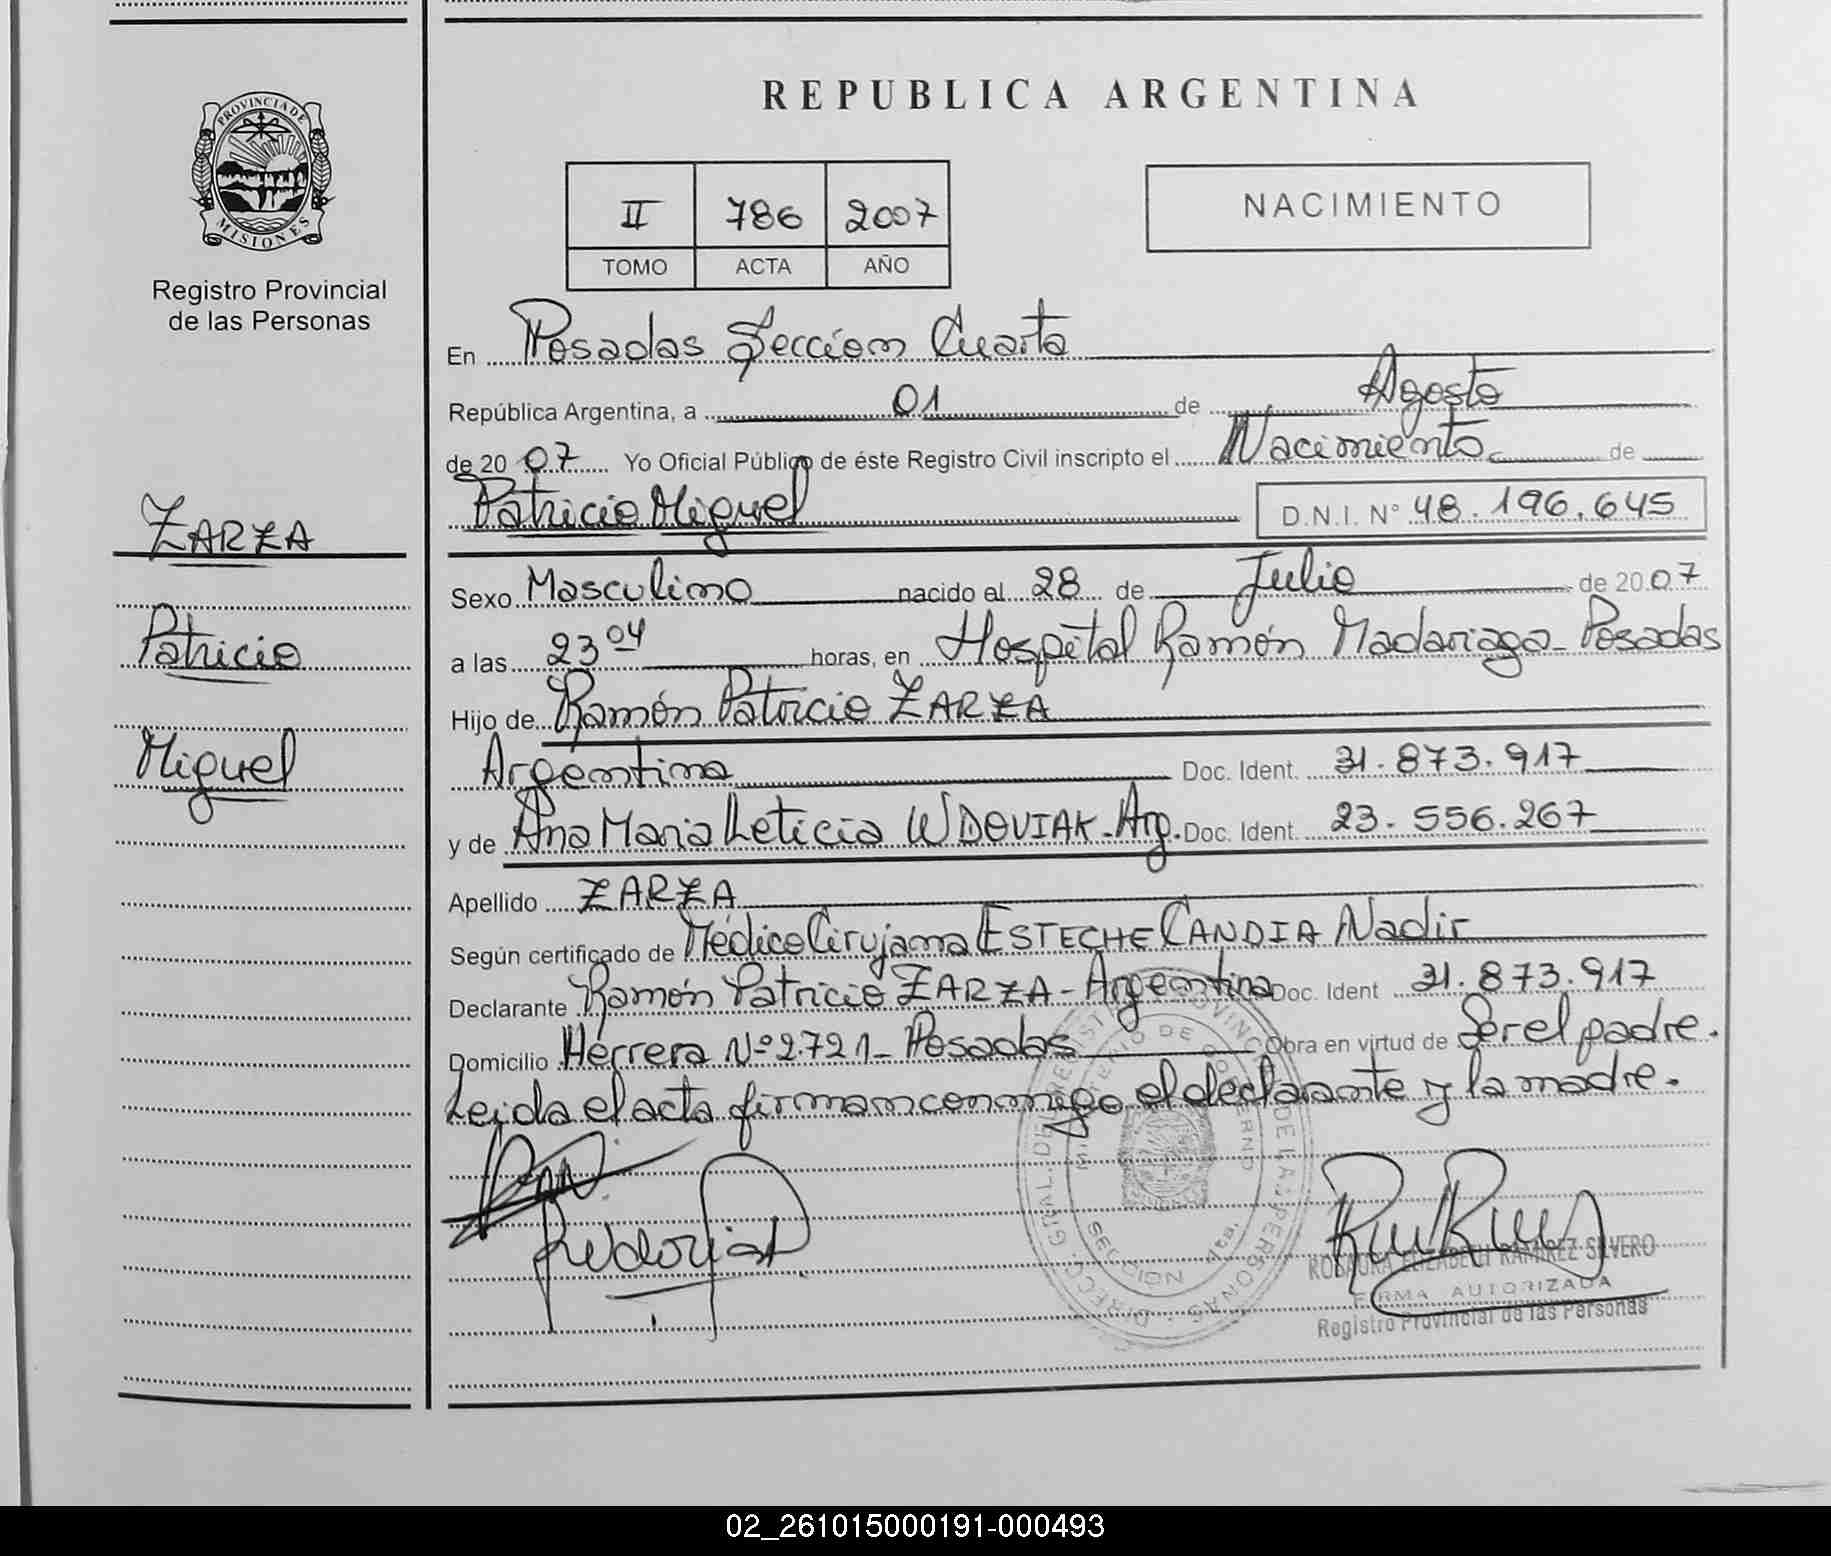 REPUBLICA ARGENTINA
PROVINCIA DE
MISIONES
Registro Provincial
de las Personas
II 786 2007
TOMO ACTA AÑO
NACIMIENTO
ZARZA
Patricio
Miguel
En Posadas Seccion Cuarta
República Argentina, a 01 de Agosto
de 2007 Yo Oficial Público de éste Registro Civil inscripto el Nacimiento de
Patricio Miguel D.N.I. N° 48.196.645
Sexo Masculino nacido al 28 de Julio de 2007
a las 23 04 horas, en Hospital Ramón Madariaga - Posadas
Hijo de Ramón Patricio ZARZA
Argentina Doc. Ident. 31.873.917
y de Ana Maria Leticia WDOVIAK - Arg. Doc. Ident. 23.556.267
Apellido ZARZA
Según certificado de Médico Cirujana ESTECHE CANDIA Nadir
Declarante Ramón Patricio ZARZA - Argentina Doc. Ident 31.873.917
Domicilio Herrera Nº 2.721 - Posadas Obra en virtud de Ser el padre.
Leida el acta firman conmigo el declarante y la madre.
ROSAURA ELIZABETH RAMIREZ SILVERO
FIRMA AUTORIZADA
Registro Provincial de las Personas
02_261015000191-000493